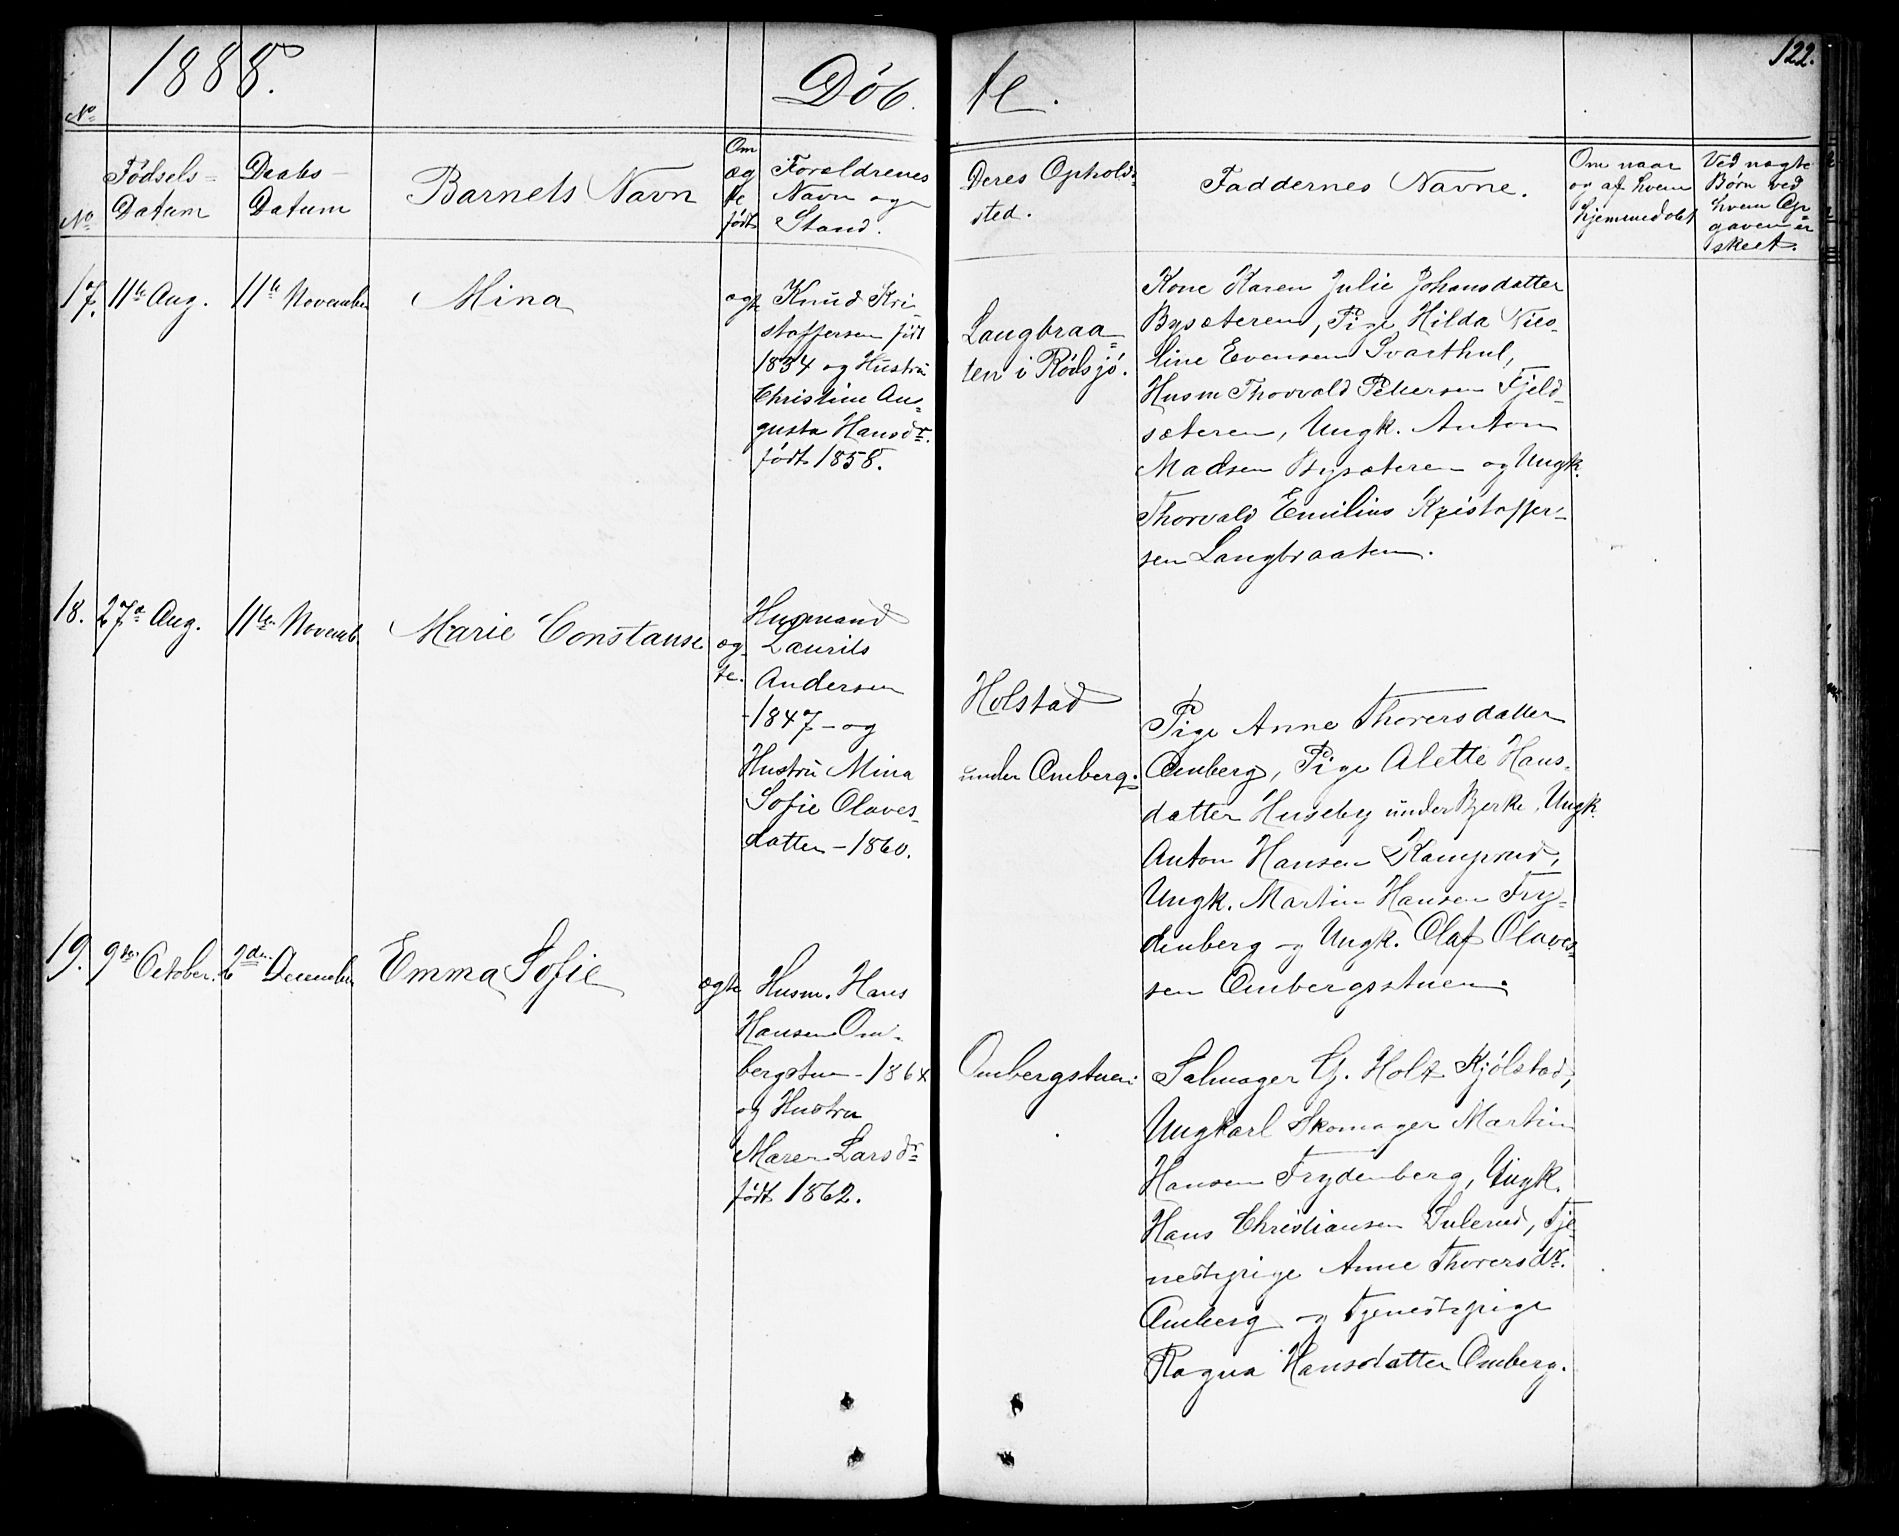 1888.
Døb
te.
122.
No
No
Fødsels-
Datum
Daabs-
Datum
Barnets Navn
Om
æg
te
født
Forældrenes
Navn og
Stand.
Deres Opholds-
sted.
Faddernes Navne.
Om naar
og af hvem
hjemmedøbt
Ved uægte
Børn ved
hvem Op-
gaven er
skeet.
17.
11te Aug.
11te November
Mina
ægte
Knud Kri-
stoffersen født
1834 og Hustru
Christine Au-
gusta Hansdr.
født 1858.
Langbraa-
ten i Rødsjø.
Kone Karen Julie Johansdatter
Bysæteren, Pige Hilda Nico-
line Evensen Svarthul,
Husm Thorvald Pettersen Fjeld-
sæteren, Ungk. Anton
Madsen Bysæteren og Ungk.
Thorvald Emilius Kristoffer-
sen Langbraaten.
18.
27de Aug.
11te Novemb.
Marie Constanse
æg-
te.
Husmand
Laurits
Andersen
-1847- og
Hustru Mina
Sofie Olaves-
datter -1860.
Holstad
under Omberg.
Pige Anne Thorersdatter
Omberg, Pige Alette Hans-
datter Huseby under Bjerke, Ungk.
Anton Hansen Kamprud,
Ungk. Martin Hansen Fry-
denberg og Ungk. Olaf Olaves-
sen Ombergsstuen.
19.
9de October.
2den December
Emma Sofie
ægte
Husm. Hans
Hansen Om-
bergstun - 1864
og Hustru
Maren Larsdr
født 1862.
Ombergstuen.
Salmager G. Holt Kjølstad,
Ungkarl Skomager Martin
Hansen Frydenberg, Ungk.
Hans Christiansen Sulerud, Tje-
nestepige Anne Thorersdr.
Omberg og Tjenestepige
Ragna Hansdatter Omberg.